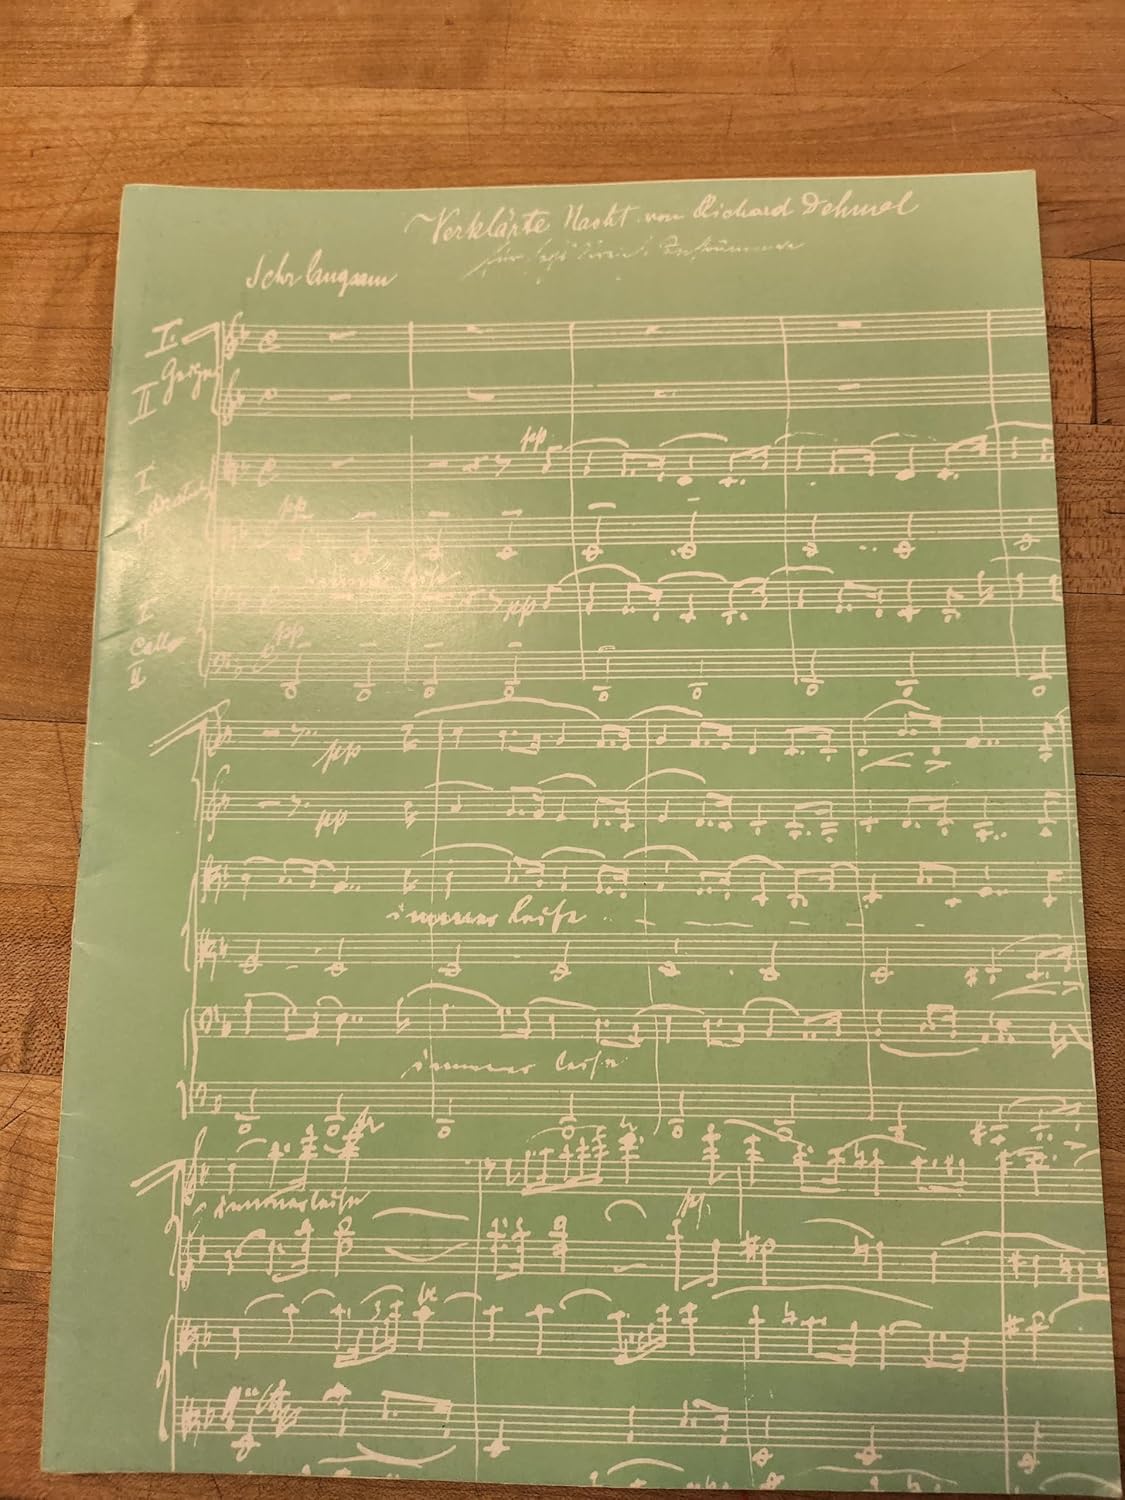 Verklärte Nacht von Richard Dehmel
für sechs Streich-Instrumente
Sehr langsam
I.
Geigen
II
I
Bratsche
pp
pp
immer leise
I
pp
Cello
pp
II
pp
pp
immer leise
immer leise
immer leise
pp